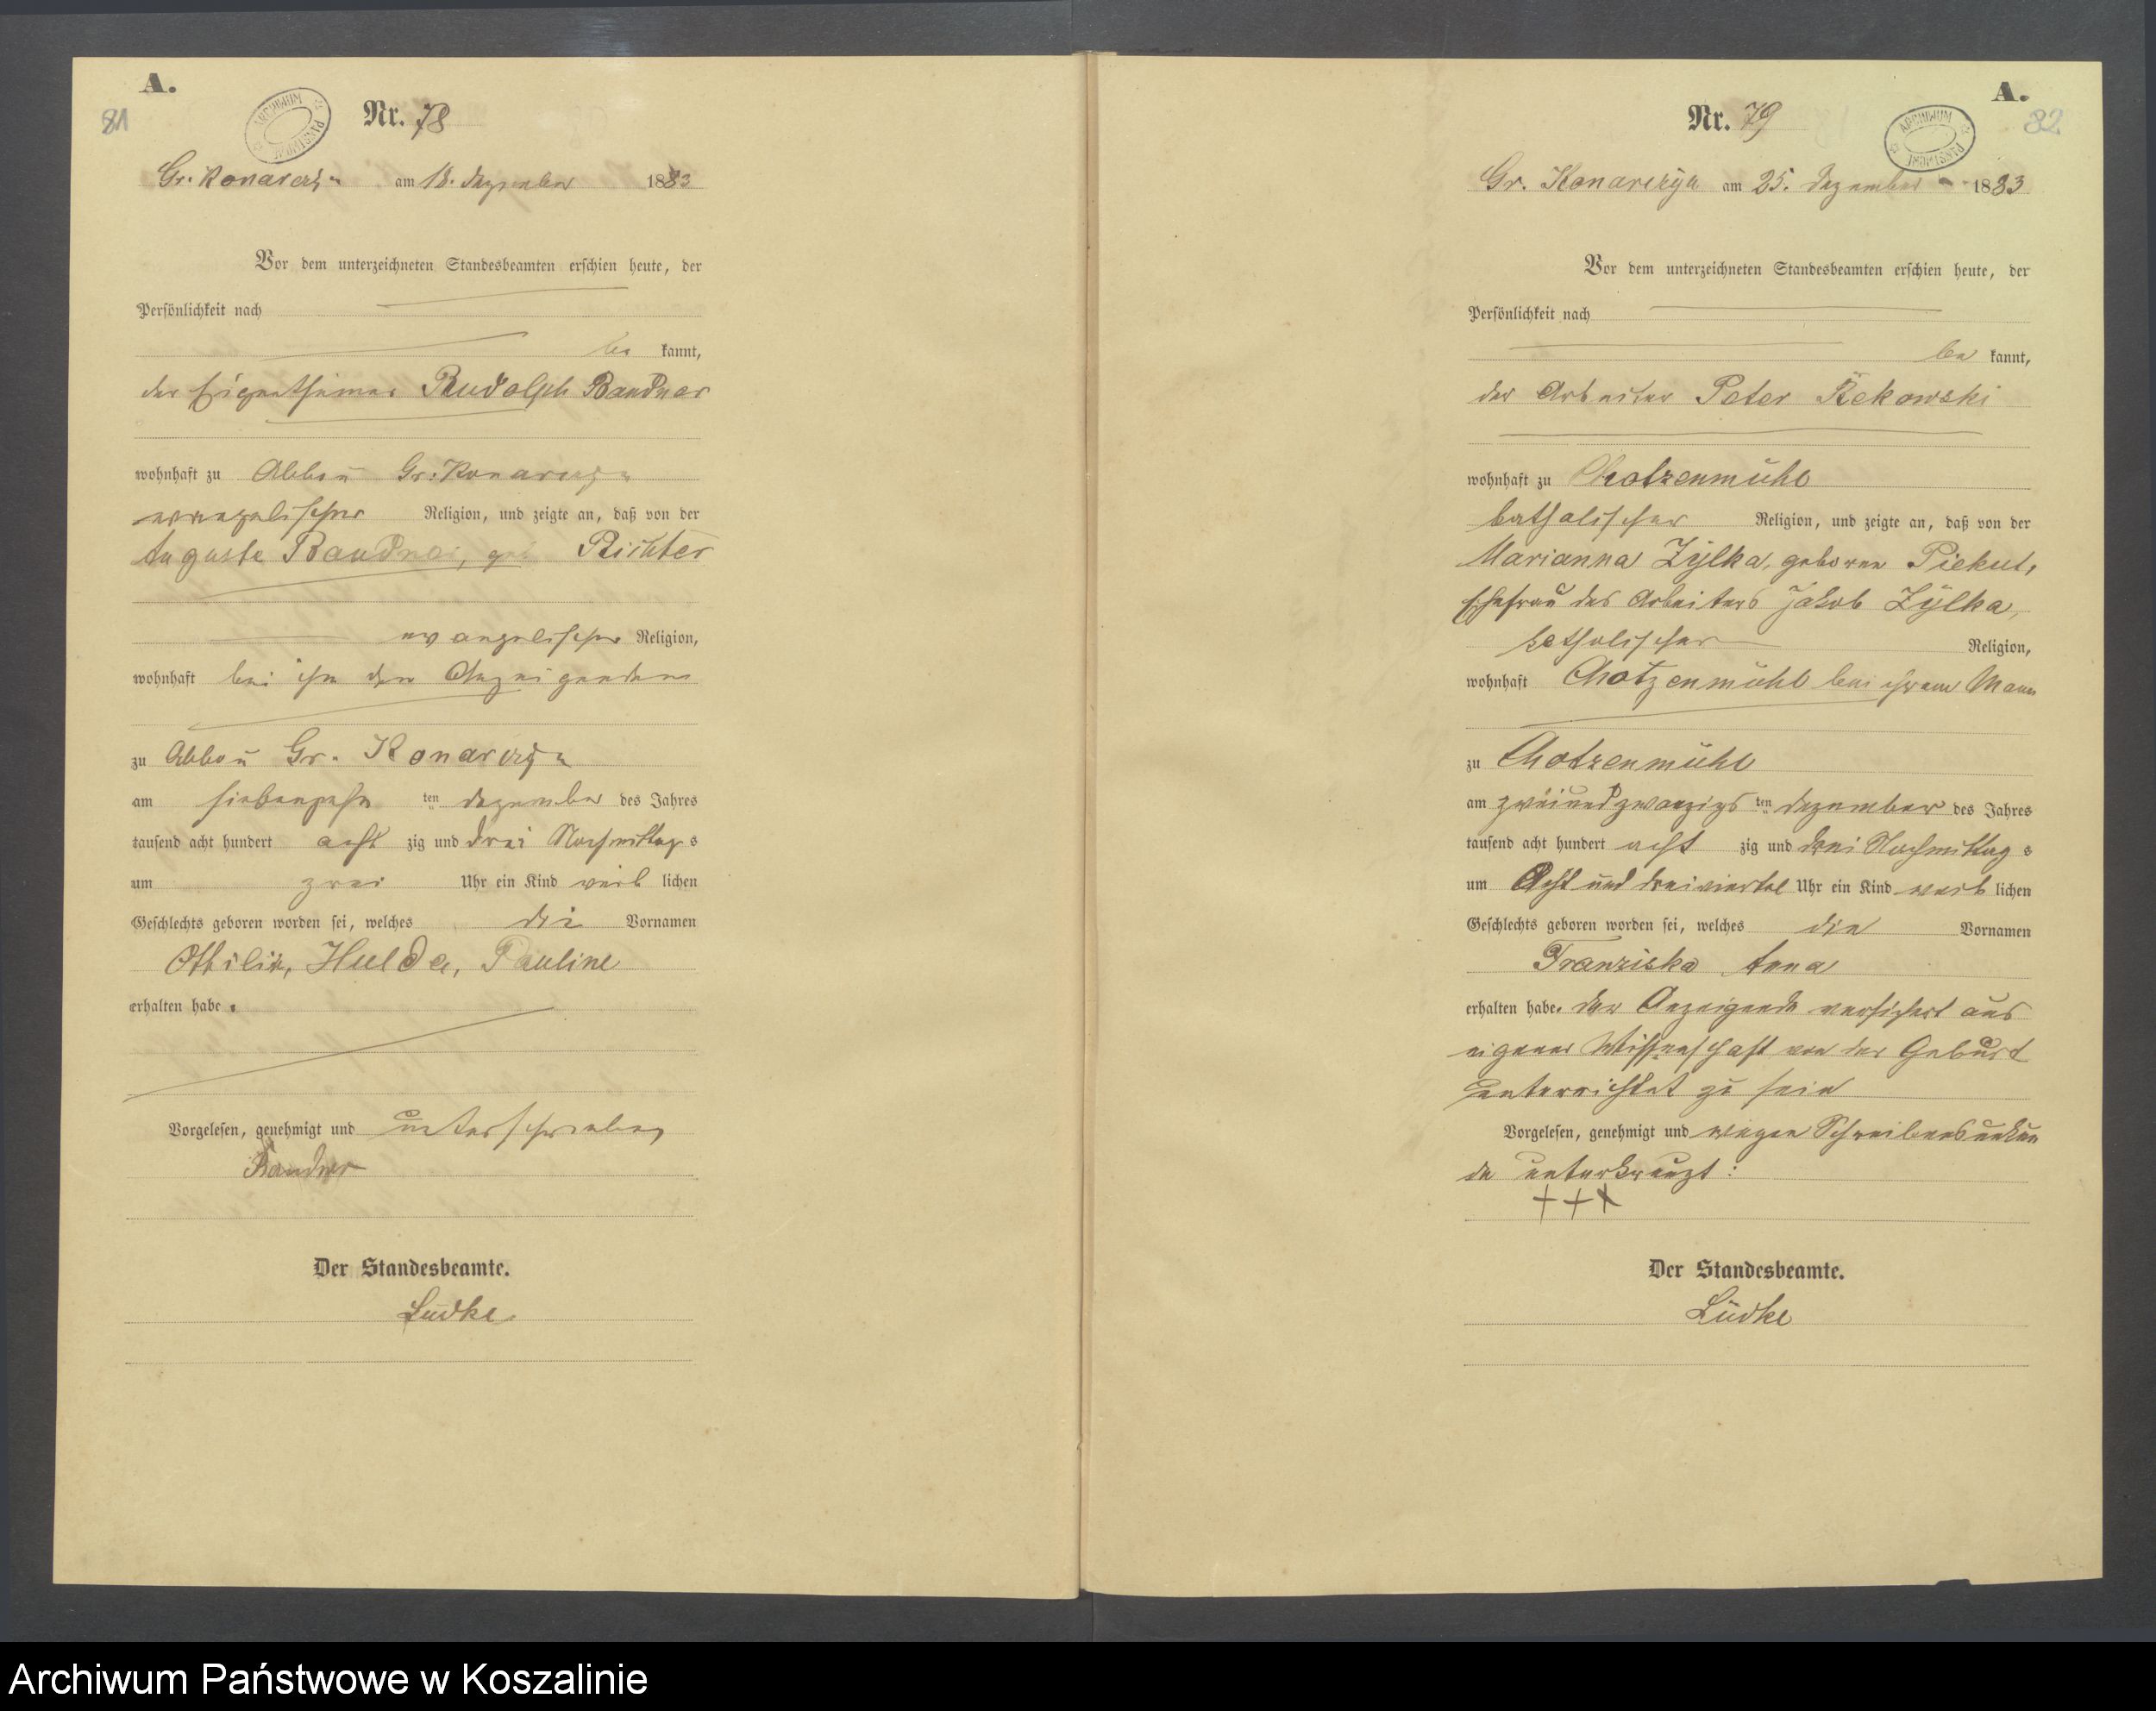 A.
81
ARCHIWUM PAŃSTWOWE
Nr. 78
Gr. Konarczyn am 18. Dezember 1883
Vor dem unterzeichneten Standesbeamten erschien heute, der
Persönlichkeit nach
be kannt,
der Eigenthümer Rudolph Bandner
wohnhaft zu Abbau Gr. Konarczyn
evangelischer Religion, und zeigte an, daß von der
Auguste Bandner, geb Richter
evangelischer Religion,
wohnhaft bei ihm dem Anzeigenden
zu Abbau Gr. Konarczyn
am siebenzehn ten Dezember des Jahres
tausend acht hundert acht zig und drei Nachmittag s
um zwei Uhr ein Kind weib lichen
Geschlechts geboren worden sei, welches die Vornamen
Ottilie, Hulda, Pauline
erhalten habe.
Vorgelesen, genehmigt und unterschrieben
Bandner
Der Standesbeamte.
Lüdke
A.
82
ARCHIWUM PAŃSTWOWE
Nr. 79
Gr. Konarczyn am 25. Dezember 1883
Vor dem unterzeichneten Standesbeamten erschien heute, der
Persönlichkeit nach
be kannt,
der Arbeiter Peter Rekowski
wohnhaft zu Chotzenmühl
katholischer Religion, und zeigte an, daß von der
Marianna Zylka, geborene Piekut,
Ehefrau des Arbeiters Jakob Zylka,
katholischer Religion,
wohnhaft Chotzenmühl bei ihrem Mann
zu Chotzenmühl
am zweiundzwanzigs ten Dezember des Jahres
tausend acht hundert acht zig und drei Nachmittag s
um Acht und dreiviertel Uhr ein Kind weib lichen
Geschlechts geboren worden sei, welches die Vornamen
Franziska Anna
erhalten habe. Der Anzeigende versichert aus
eigener Wissenschaft von der Geburt
unterrichtet zu sein
Vorgelesen, genehmigt und wegen Schreibensunkun
de unterkreuzt:
+++
Der Standesbeamte.
Lüdke
Archiwum Państwowe w Koszalinie